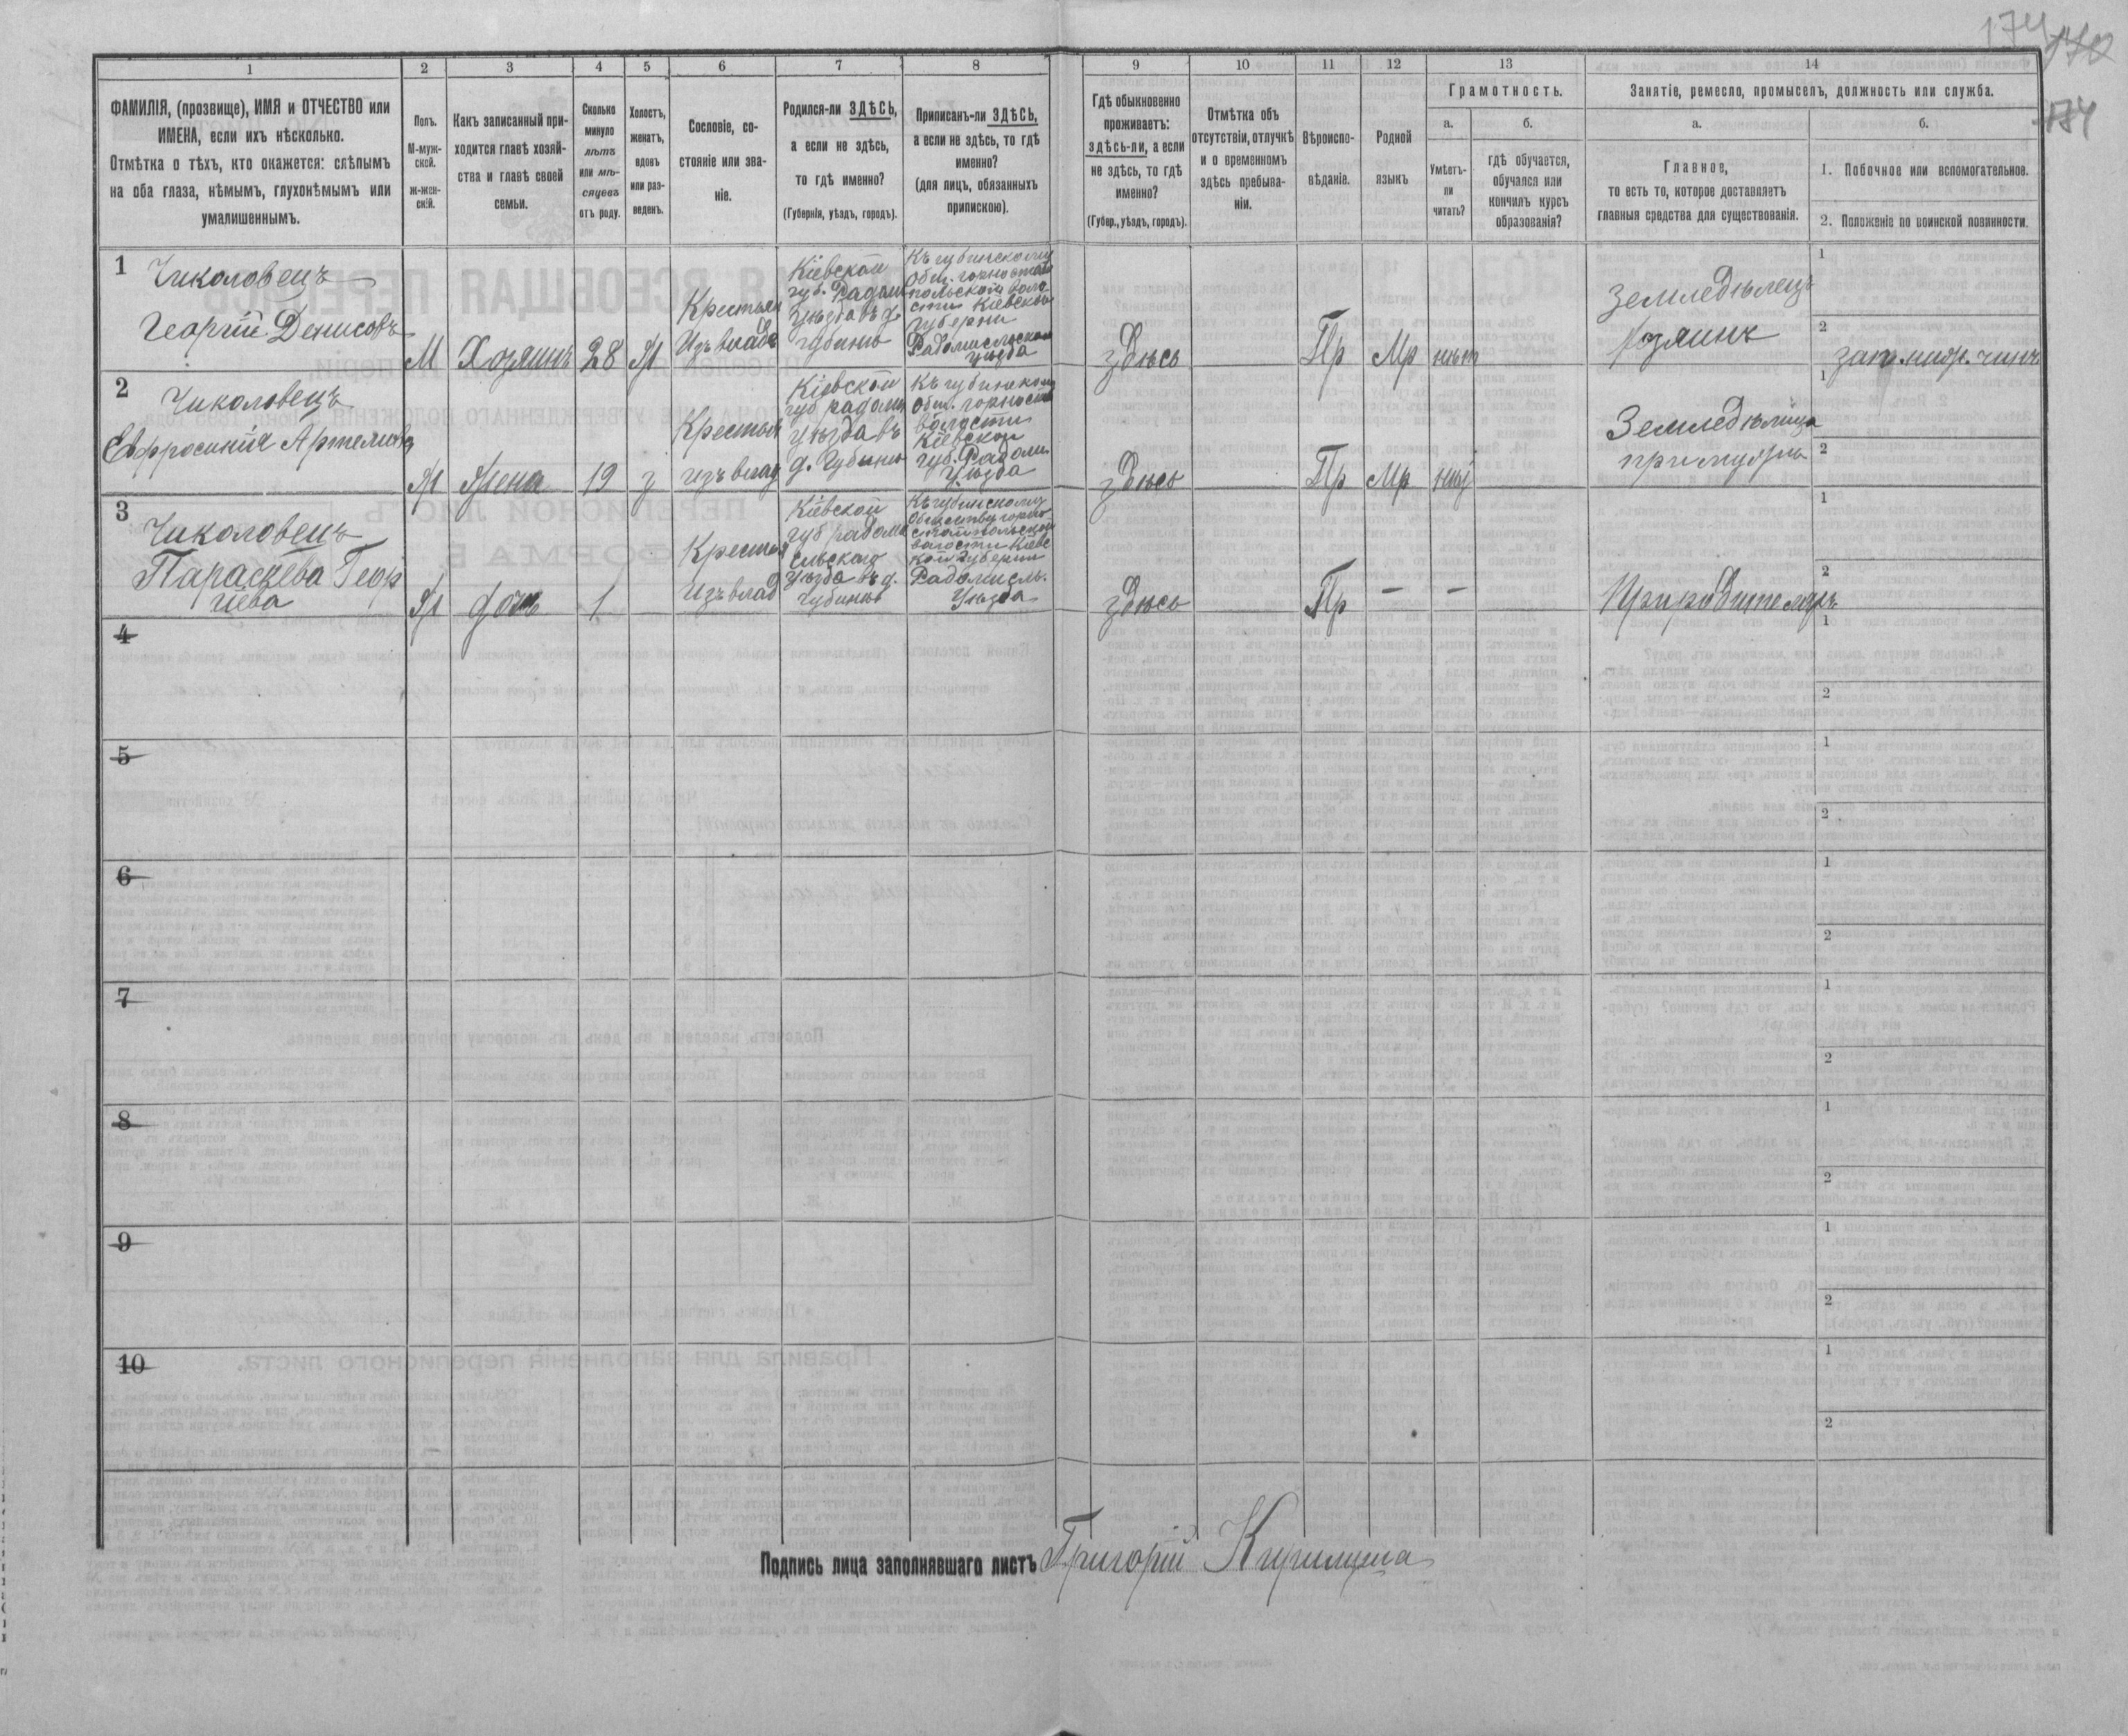 174 172
174
1
2
3
4
5
6
7
8
9
10
11
12
13
14
ФАМИЛІЯ, (прозвище), ИМЯ и ОТЧЕСТВО или
ИМЕНА, если ихъ нѣсколько.
Отмѣтка о тѣхъ, кто окажется: слѣпымъ
на оба глаза, нѣмымъ, глухонѣмымъ или
умалишеннымъ.
Полъ.
М-муж-
ской.
ж-жен-
скій.
Какъ записанный при-
ходится главѣ хозяй-
ства и главѣ своей
семьи.
Сколько
минуло
лѣтъ
или мѣ-
сяцевъ
отъ роду.
Холостъ,
женатъ,
вдовъ
или раз-
веденъ.
Сословіе, со-
стояніе или зва-
ніе.
Родился-ли ЗДѢСЬ,
а если не здѣсь,
то гдѣ именно?
(Губернія, уѣздъ, городъ).
Приписанъ-ли ЗДѢСЬ,
а если не здѣсь, то гдѣ
именно?
(для лицъ, обязанныхъ
припискою).
Гдѣ обыкновенно
проживаетъ:
здѣсь-ли, а если
не здѣсь, то гдѣ
именно?
(Губер., уѣздъ, городъ).
Отмѣтка объ
отсутствіи, отлучкѣ
и о временномъ
здѣсь пребыва-
ніи.
Вѣроиспо-
вѣданіе.
Родной
языкъ
Грамотность.
а.
Умѣетъ-
ли
читать?
б.
гдѣ обучается,
обучался или
кончилъ курсъ
образованія?
Занятіе, ремесло, промыселъ, должность или служба.
а.
Главное,
то есть то, которое доставляетъ
главныя средства для существованія.
б.
1. Побочное или вспомогательное.
2. Положеніе по воинской повинности.
1
Чиколовецъ
Георгій Денисовъ
М
Хозяинъ
28
Ж
Крестьян
Изъ влад
Кіевской
губ. Радом
Уѣзда въ д.
Губинѣ
Къ губинскому
Общ. горноста
польской воло
сти Кіевской
Губерни
Радомысльском
Уѣзда
здѣсь
Пр
Мр
нѣт
Земледѣлецъ
Хозяинъ
1
2
зап. ниж. чинъ
2
Чиколовецъ
Евфросинія Артемова
Ж
Жена
19
з
Крестьян
изъ влад
Кіевской
губ радом
Уѣзда въ
д. Губинѣ
Къ губинском
Общ. горност
волости
Кіевской
губ. Радом.
Уѣзда
здѣсь
Пр
Мр
нѣт
Земледѣлица
при мужѣ
1
2
3
Чиколовецъ
Параскева Геор
гіева
Ж
дочь
1
Крестья
Изъ влад
Кіевской
губ радом
сльскаго
Уѣзда въ д.
Губинѣ
Къ губинскому
Обществу горно
стайпольской
волости Кіевс
кой Губерни
Радомысль.
Уѣзда
здѣсь
Пр
–
–
При родителяхъ
1
2
4
1
2
5
1
2
6
1
2
7
1
2
8
1
2
9
1
2
10
1
2
Подпись лица заполнявшаго листъ Григорій Кирилуша